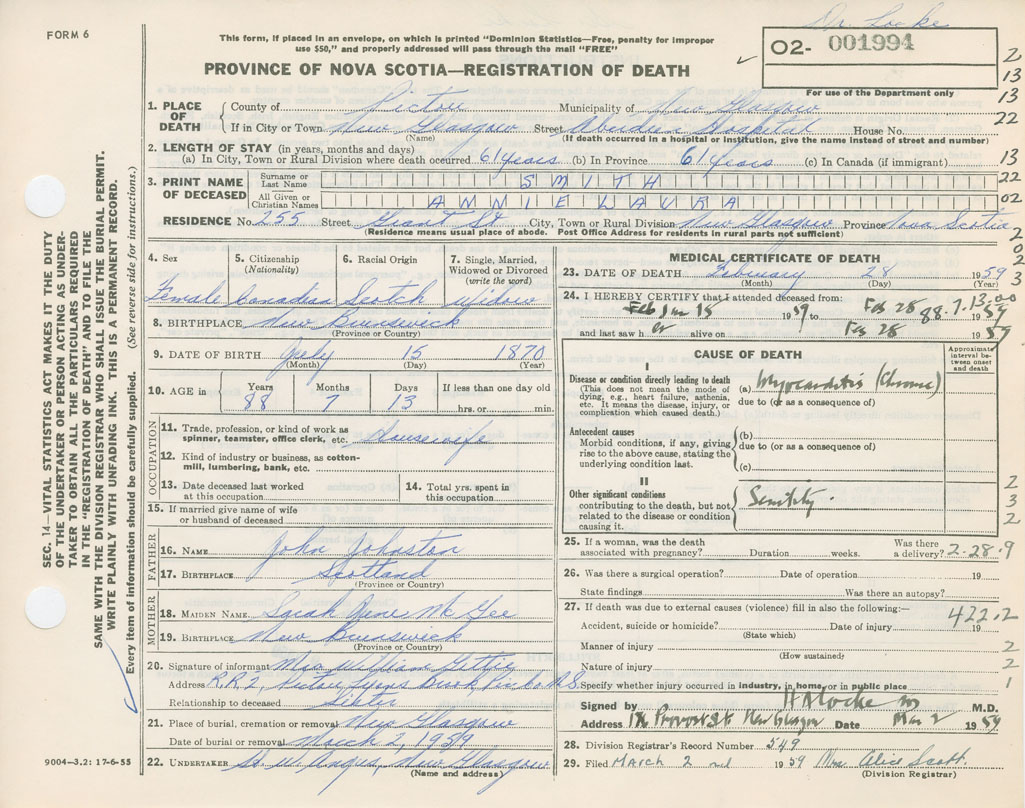 FORM 6
Dr. Locke
This form, if placed in an envelope, on which is printed "Dominion Statistics—Free, penalty for improper
use $50," and properly addressed will pass through the mail "FREE"
O2- 001994
For use of the Department only
PROVINCE OF NOVA SCOTIA—REGISTRATION OF DEATH
1. PLACE OF DEATH County of Pictou Municipality of New Glasgow
If in City or Town New Glasgow Street Aberdeen Hospital House No.
(Name) (If death occurred in a hospital or institution, give the name instead of street and number)
2. LENGTH OF STAY (in years, months and days)
(a) In City, Town or Rural Division where death occurred 61 years (b) In Province 61 years (c) In Canada (if immigrant)
3. PRINT NAME OF DECEASED Surname or Last Name SMITH
All Given or Christian Names ANNIE LAURA
RESIDENCE No. 255 Street Grant St City, Town or Rural Division New Glasgow Province Nova Scotia
(Residence means usual place of abode. Post Office Address for residents in rural parts not sufficient)
2
13
13
22
13
22
02
2
0
2
2
3
4. Sex 5. Citizenship (Nationality) 6. Racial Origin 7. Single, Married, Widowed or Divorced (write the word)
Female Canadian Scotch Widow
8. BIRTHPLACE New Brunswick
(Province or Country)
9. DATE OF BIRTH July 15 1870
(Month) (Day) (Year)
10. AGE in Years Months Days If less than one day old
88 7 13 hrs. or min.
OCCUPATION
11. Trade, profession, or kind of work as
spinner, teamster, office clerk, etc. Housewife
12. Kind of industry or business, as cotton-
mill, lumbering, bank, etc.
13. Date deceased last worked
at this occupation
14. Total yrs. spent in
this occupation
15. If married give name of wife
or husband of deceased
FATHER
16. NAME John Johnston
17. BIRTHPLACE Scotland
(Province or Country)
MOTHER
18. MAIDEN NAME Sarah Jane McGee
19. BIRTHPLACE New Brunswick
(Province or Country)
20. Signature of informant Mrs William
Address R.R.2, Pictou, Lyons Brook, Pictou N.S.
Relationship to deceased Sister
21. Place of burial, cremation or removal New Glasgow
Date of burial or removal March 2, 1959
22. UNDERTAKER H. W. Angus, New Glasgow
(Name and address)
MEDICAL CERTIFICATE OF DEATH
23. DATE OF DEATH February 28 1959
(Month) (Day) (Year)
24. I HEREBY CERTIFY that I attended deceased from:
Jan 15 1959 to Feb 28 1959
88.7.13.00
and last saw her alive on Feb 28 1959
CAUSE OF DEATH
Approximate
interval be-
tween onset
and death
I
Disease or condition directly leading to death
(This does not mean the mode of
dying, e.g., heart failure, asthenia,
etc. It means the disease, injury, or
complication which caused death.)
(a) Myocarditis (Chronic)
due to (or as a consequence of)
Antecedent causes
Morbid conditions, if any, giving
rise to the above cause, stating the
underlying condition last.
(b)
due to (or as a consequence of)
(c)
II
Other significant conditions
contributing to the death, but not
related to the disease or condition
causing it.
Senility.
2
3
2
25. If a woman, was the death
associated with pregnancy? Duration weeks. Was there a delivery? 2-28-9
26. Was there a surgical operation? Date of operation 19
State findings Was there an autopsy?
27. If death was due to external causes (violence) fill in also the following:—
422.2
Accident, suicide or homicide? Date of injury 19
(State which)
Manner of injury 2
(How sustained)
Nature of injury 2
Specify whether injury occurred in industry, in home, or in public place 1
Signed by H A Locke M.D.
Address 176 Provost St New Glasgow Date Mar 2 1959
28. Division Registrar's Record Number 549
29. Filed March 2nd 1959 Mrs. Alice Scott.
(Division Registrar)
SEC. 14—VITAL STATISTICS ACT MAKES IT THE DUTY
OF THE UNDERTAKER OR PERSON ACTING AS UNDER-
TAKER TO OBTAIN ALL THE PARTICULARS REQUIRED
IN THE "REGISTRATION OF DEATH" AND TO FILE THE
SAME WITH THE DIVISION REGISTRAR WHO SHALL ISSUE THE BURIAL PERMIT.
WRITE PLAINLY WITH UNFADING INK. THIS IS A PERMANENT RECORD.
Every item of information should be carefully supplied. (See reverse side for instructions.)
9004—3.2: 17-6-55